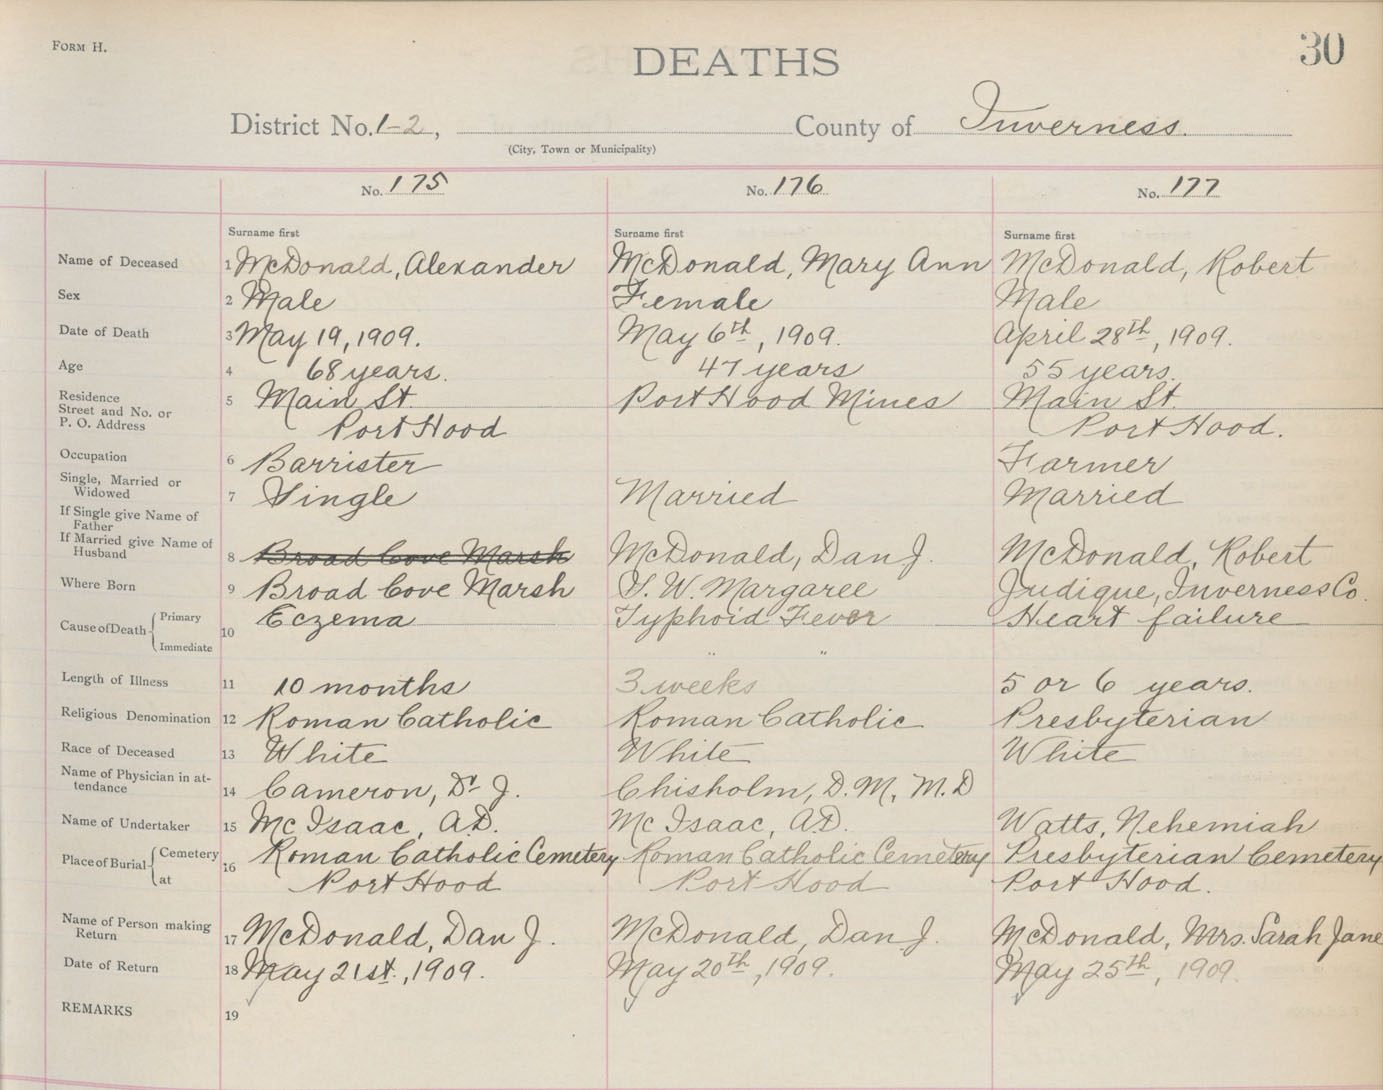 FORM H.
DEATHS
30
District No. 1-2, County of Inverness.
(City, Town or Municipality)
No. 175 No. 176 No. 177
Surname first Surname first Surname first
Name of Deceased 1 McDonald, Alexander McDonald, Mary Ann McDonald, Robert
Sex 2 Male Female Male
Date of Death 3 May 19, 1909. May 6th, 1909. April 28th, 1909.
Age 4 68 years. 47 years 55 years.
Residence 5 Main St. Port Hood Mines Main St.
Street and No. or
P. O. Address Port Hood Port Hood.
Occupation 6 Barrister Farmer
Single, Married or
Widowed 7 Single Married Married
If Single give Name of
Father
If Married give Name of
Husband 8 Broad Cove Marsh McDonald, Dan J. McDonald, Robert
Where Born 9 Broad Cove Marsh S. W. Margaree Judique, Inverness Co.
Cause of Death Primary 10 Eczema Typhoid Fever Heart failure
Immediate " "
Length of Illness 11 10 months 3 weeks 5 or 6 years.
Religious Denomination 12 Roman Catholic Roman Catholic Presbyterian
Race of Deceased 13 White White White
Name of Physician in at-
tendance 14 Cameron, Dr J. Chisholm, D. M., M. D
Name of Undertaker 15 McIsaac, A.D. McIsaac, A.D. Watts, Nehemiah
Place of Burial Cemetery 16 Roman Catholic Cemetery Roman Catholic Cemetery Presbyterian Cemetery
at Port Hood Port Hood Port Hood.
Name of Person making
Return 17 McDonald, Dan J. McDonald, Dan J. McDonald, Mrs. Sarah Jane
Date of Return 18 May 21st, 1909. May 20th, 1909. May 25th, 1909.
REMARKS 19